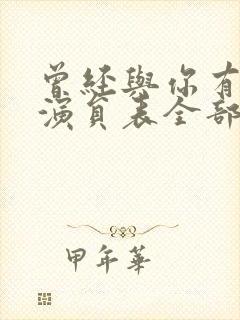 曾經與你有
演員表全部
甲年華